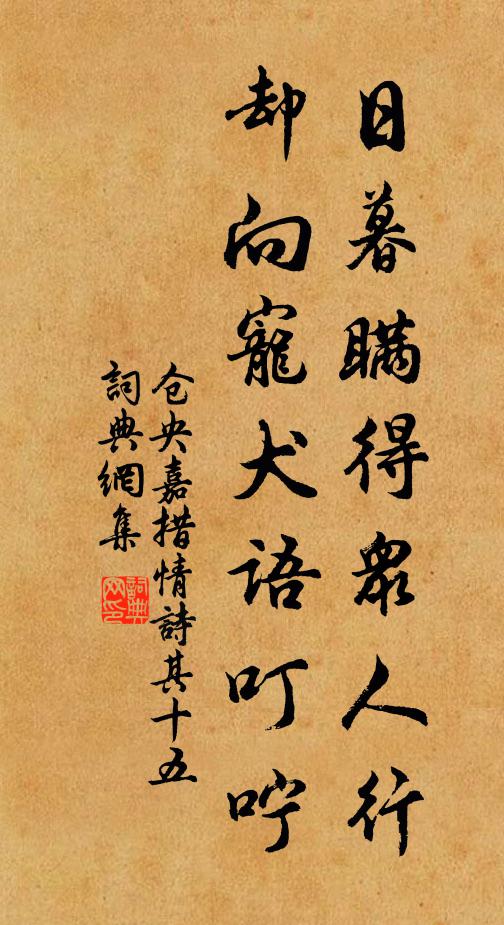 日暮瞞得眾人行
却向寵犬語叮咛
仓央嘉措情詩其十五
詞典網集
詞典网印